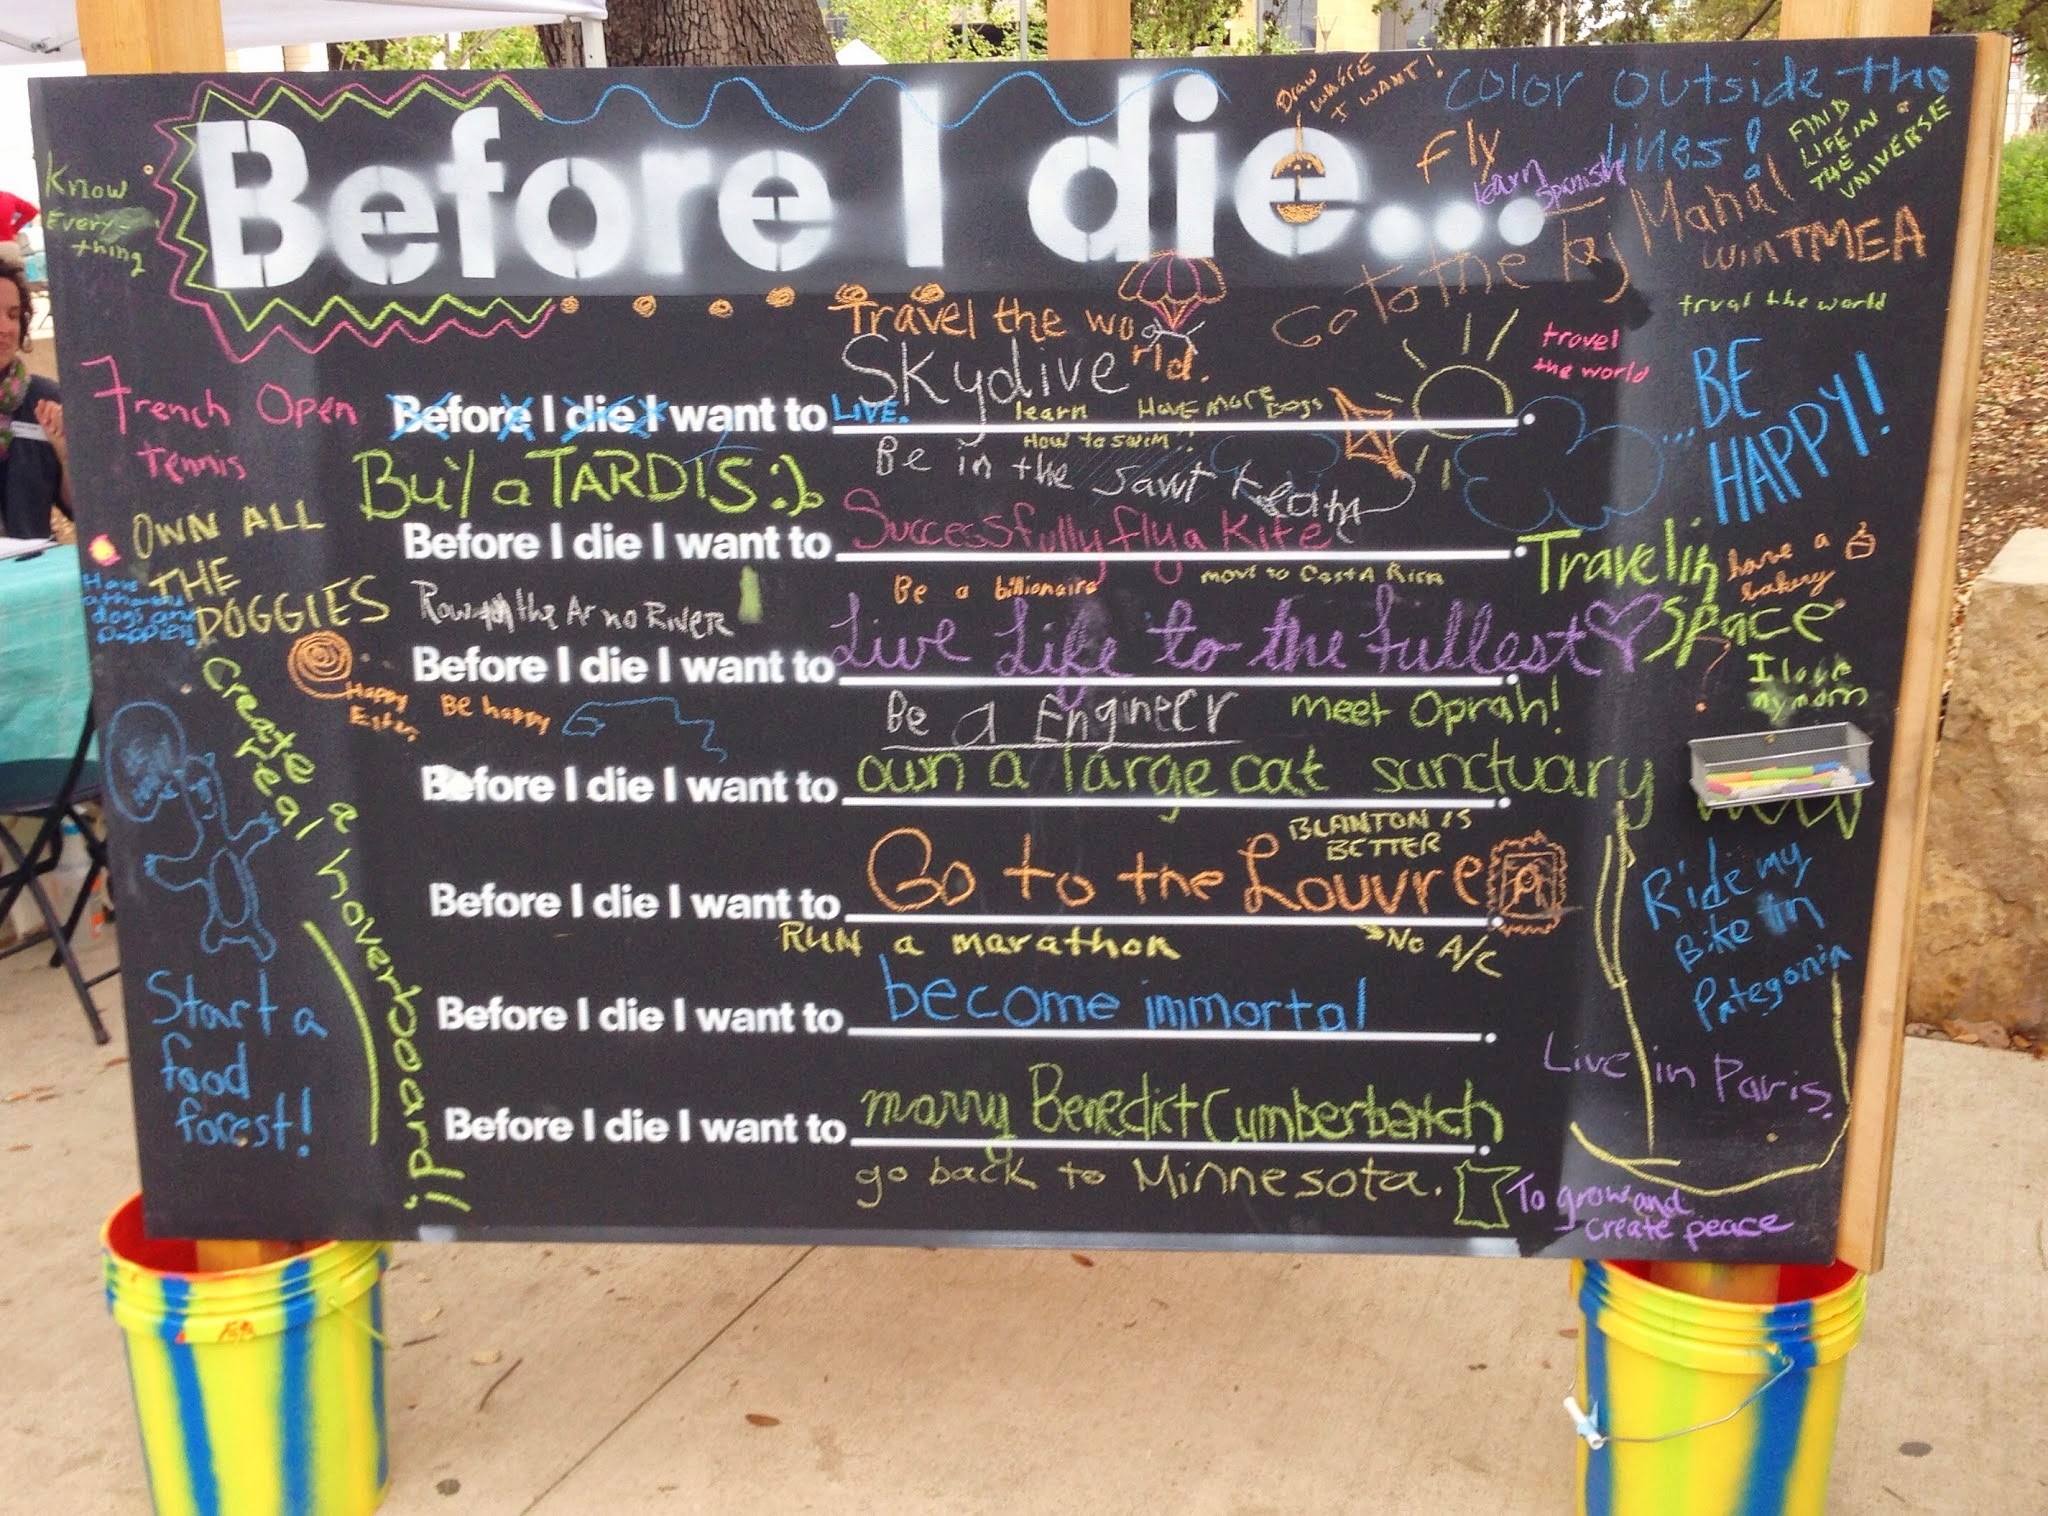 Before I die...
Draw
WHERE
I WANT!
color outside the
lines!
Fly
learn
Spanish
FIND
LIFE IN
THE
UNIVERSE
Know
Every-
thing
Go to the Taj Mahal
win TMEA
trval the world
Travel the wo
rld.
travel
the world
Skydive
...BE
HAPPY!
French Open
tennis
Before I die I want to LIVE.
learn
How to swim!!
Have more Dogs
Be in the sawt team
Buil a TARDIS :)
Before I die I want to Successfully fly a Kite
OWN ALL
THE
DOGGIES
Travel in
Space
have a
bakery
Be a billionaire
move to Costa Rica
Row the Arno River
Before I die I want to Live Life to the fullest
I love
my mom
Happy
Be happy
Be a Engineer
meet Oprah!
Create a
real hoverboard!
Before I die I want to own a large cat sanctuary
BLANTON IS
BETTER
Before I die I want to Go to the Louvre
No A/C
RUN a marathon
Ride my
Bike in
Patagonia
Start a
food
forest!
Before I die I want to become immortal
Live in Paris.
Before I die I want to marry Benedict Cumberbatch
go back to Minnesota.
To grow and
create peace